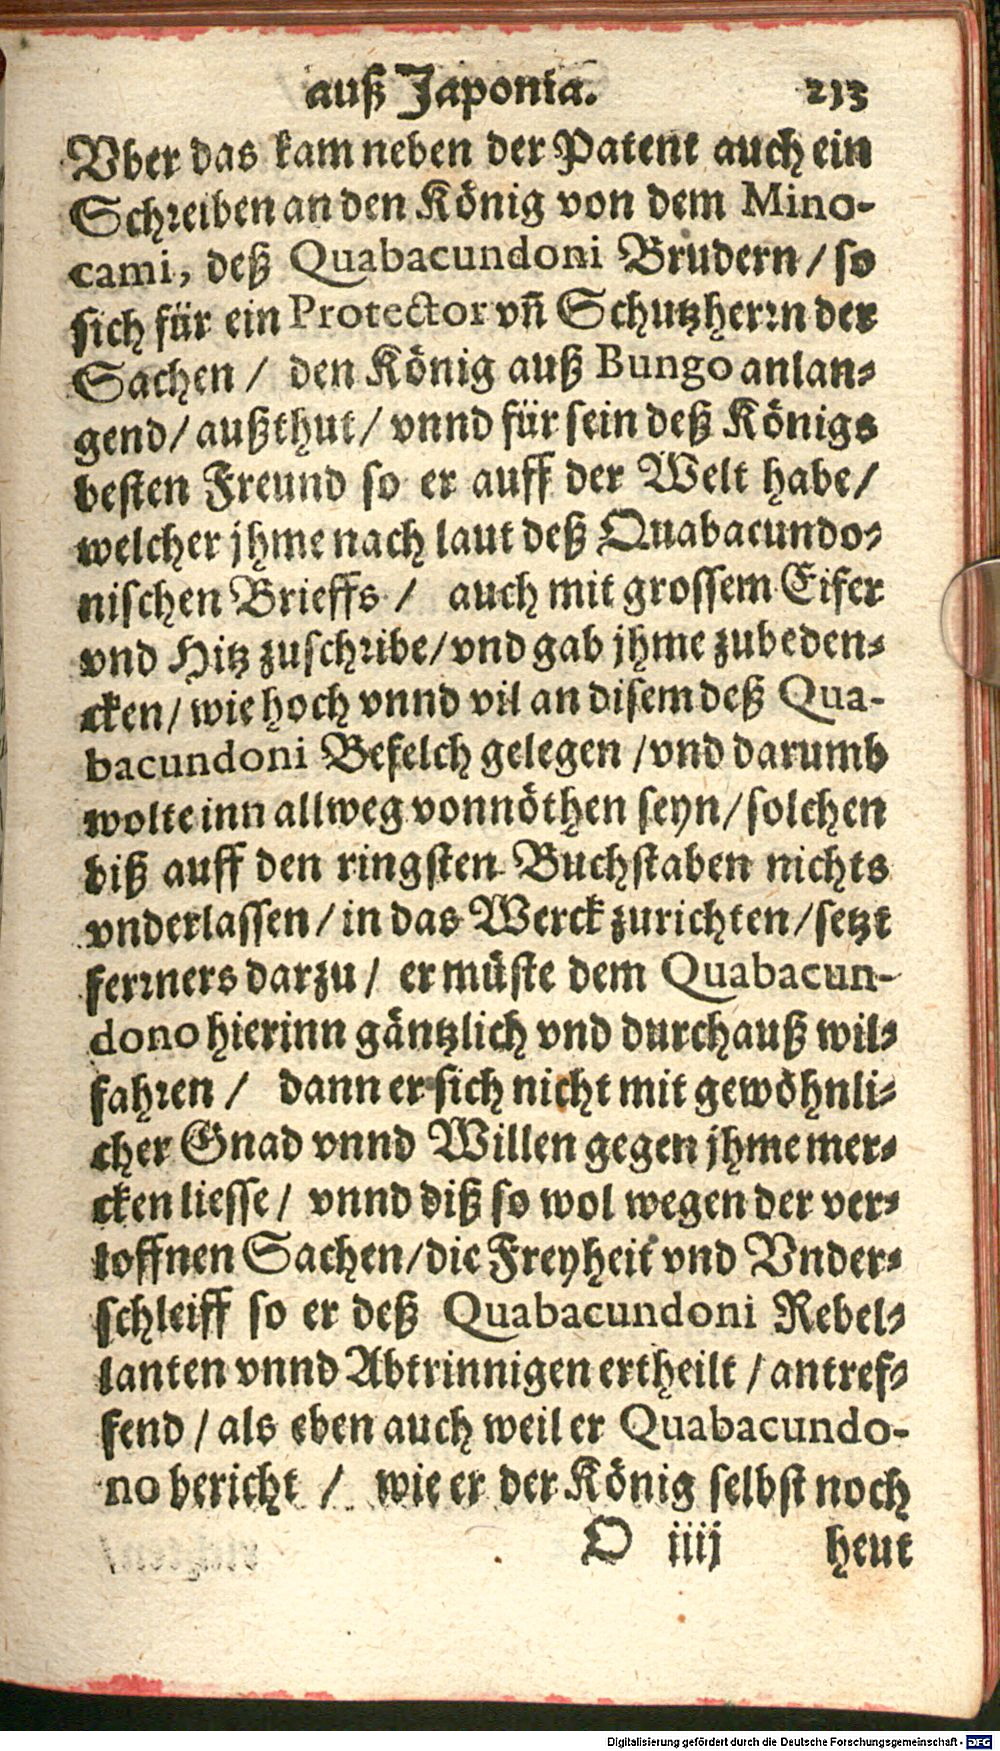 auß Japonia. 213
Vber das kam neben der Patent auch ein
Schreiben an den König von dem Mino-
cami, deß Quabacundoni Brudern / so
sich für ein Protector vñ Schutzherrn der
Sachen / den König auß Bungo anlan-
gend / außthut / vnnd für sein deß Königs
besten Freund so er auff der Welt habe /
welcher jhme nach laut deß Quabacundo-
nischen Brieffs / auch mit grossem Eifer
vnd Hitz zuschribe / vnd gab jhme zubeden-
cken / wie hoch vnnd vil an disem deß Qua-
bacundoni Befelch gelegen / vnd darumb
wolte inn allweg vonnöthen seyn / solchen
biß auff den ringsten Buchstaben nichts
vnderlassen / in das Werck zurichten / setzt
ferrners darzu / er müste dem Quabacun-
dono hierinn gäntzlich vnd durchauß wil-
fahren / dann er sich nicht mit gewöhnli-
cher Gnad vnnd Willen gegen jhme mer-
cken liesse / vnnd diß so wol wegen der ver-
loffnen Sachen / die Freyheit vnd Vnder-
schleiff so er deß Quabacundoni Rebel-
lanten vnnd Abtrinnigen ertheilt / antref-
fend / als eben auch weil er Quabacundo-
no bericht / wie er der König selbst noch
O iiij heut
Digitalisierung gefördert durch die Deutsche Forschungsgemeinschaft - DFG